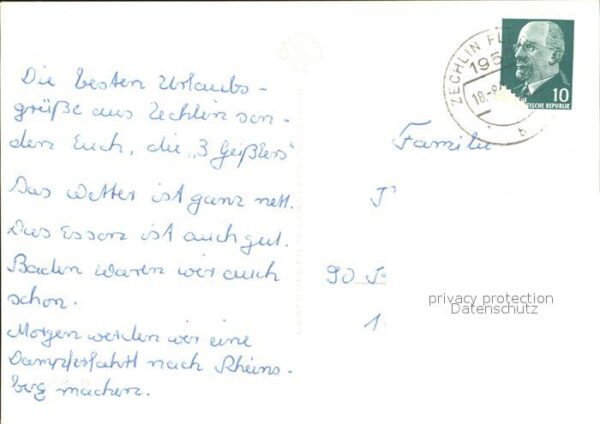 Die besten Urlaubs-
grüße aus Zechlin sen-
den Euch, die „3 Geißlers"
Das Wetter ist ganz nett.
Das Essen ist auch gut.
Baden waren wir auch
schon.
Morgen werden wir eine
Dampferfahrt nach Rheins-
berg machen.
ZECHLIN
195
18.-8
b
10
SCHE REPUBLIK
Familie
J
90
1
privacy protection
Datenschutz